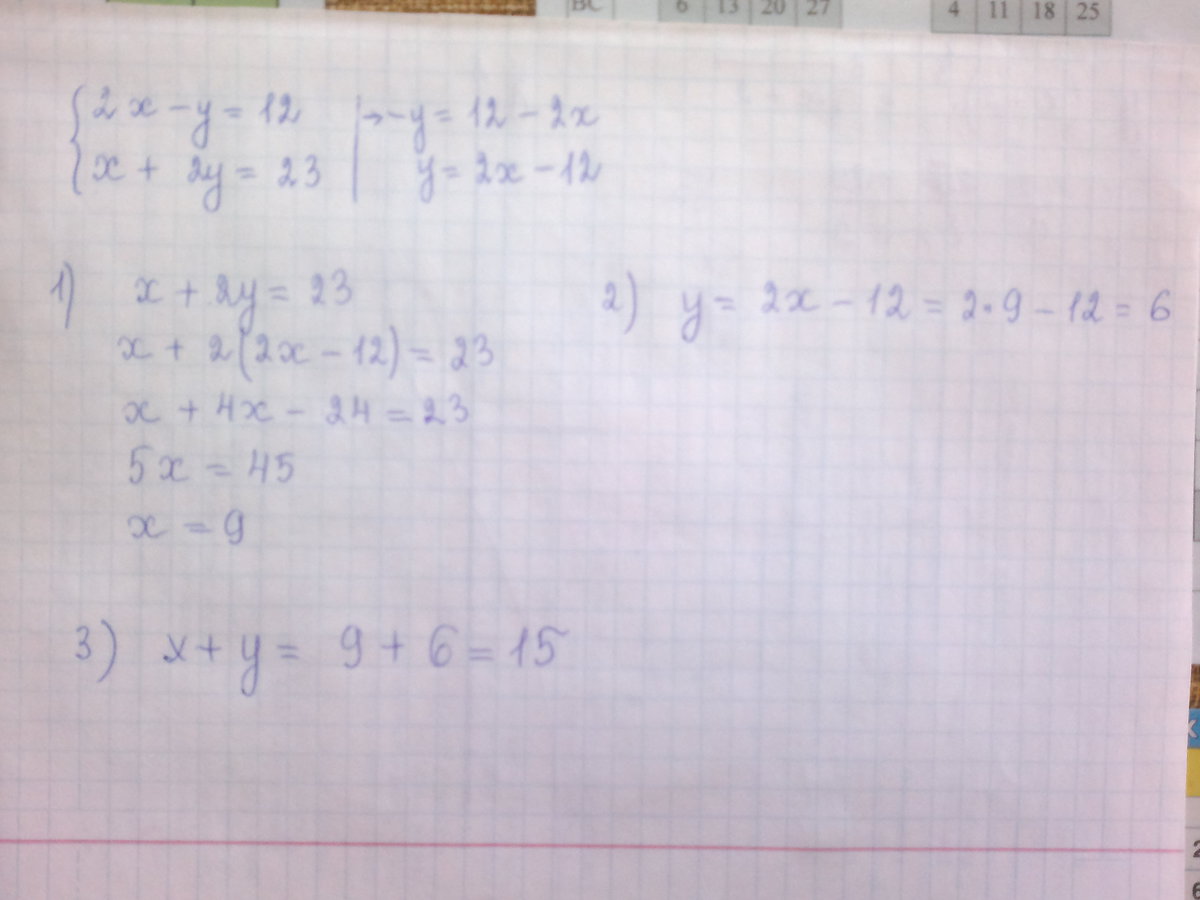 ВС 6 13 20 27 4 11 18 25
{2x - y = 12 |→ -y = 12 - 2x
x + 2y = 23 | y = 2x - 12
1) x + 2y = 23
x + 2(2x - 12) = 23
x + 4x - 24 = 23
5x = 45
x = 9
2) y = 2x - 12 = 2·9 - 12 = 6
3) x + y = 9 + 6 = 15
2
6